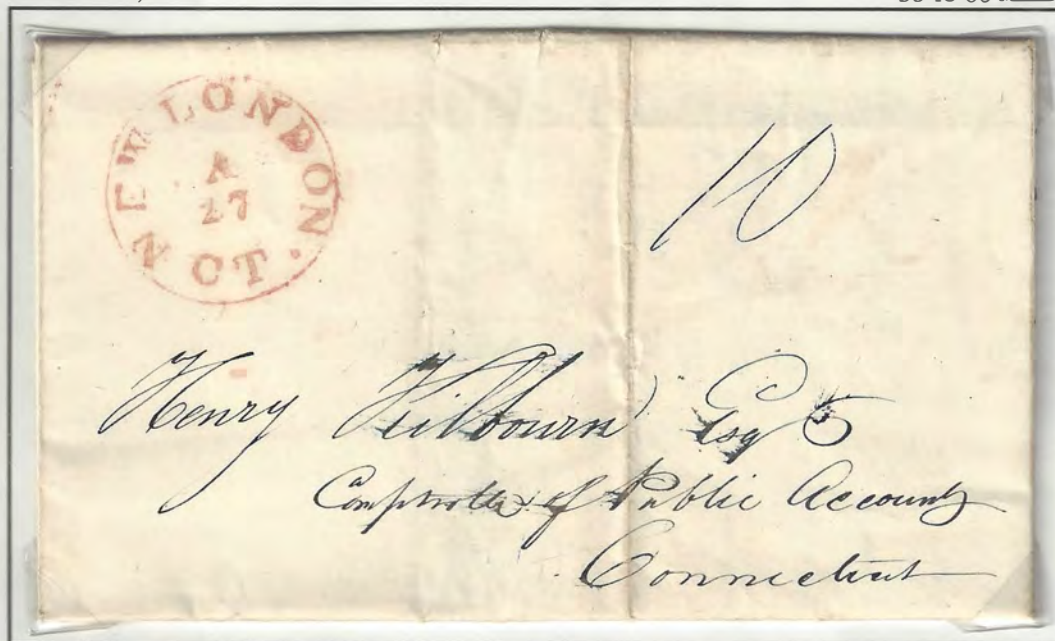 NEW LONDON. CT
A
27
10
Henry Kilbourn Esq
Comptroller of Public Accounts
Connecticut